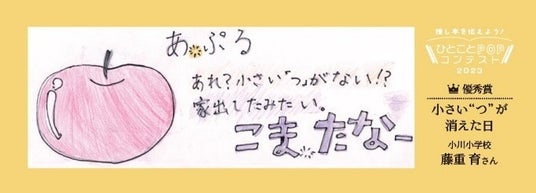 あ ぷる
あれ?小さい「つ」がない!?
家出したみたい。
こま たなー
推し本を伝えよう!
ひとことPOP
コンテスト
2023
優秀賞
小さい“つ”が
消えた日
小川小学校
藤重 育さん